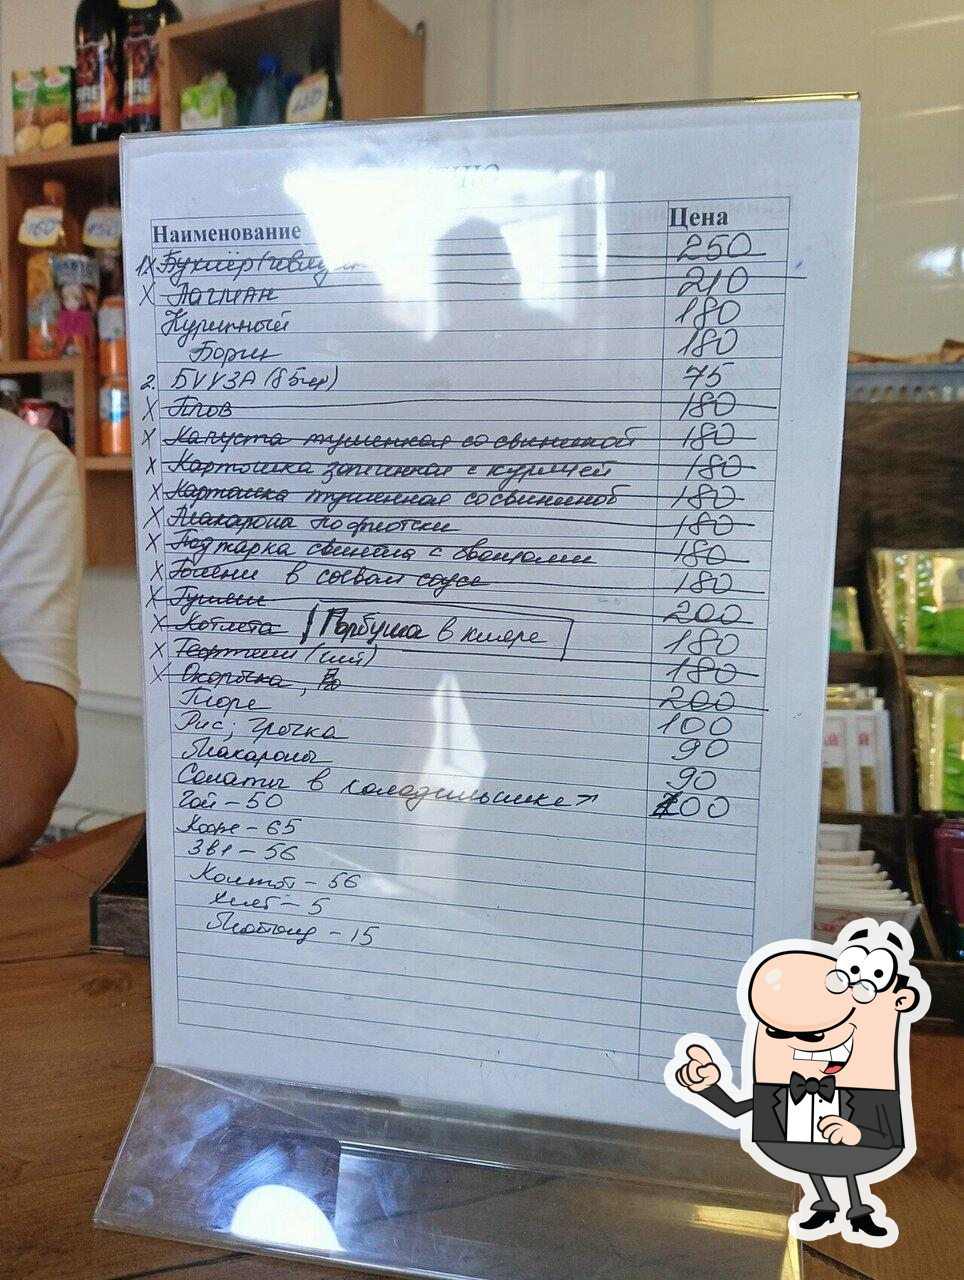 Меню
Наименование Цена
1X Бухлёр (говядина 250
X Лагман 210
Куриный 180
Борщ 180
2. БУУЗА (85гр) 75
X Плов 180
X Капуста тушенная со свининой 180
X Картошка запеченная с курицей 180
X Картошка тушенная со свининой 180
X Макароны по флотски 180
X Поджарка свиная с овощами 180
X Голени в соевом соусе 180
X Гуляш 200
X Котлета Горбуша в кляре 180
X Тефтели (2шт) 180
X Окорочка 200
Пюре 100
Рис; Гречка 90
Макароны 90
Салаты в холодильнике 100
Чай - 50
Кофе - 65
3в1 - 56
Компот - 56
хлеб - 5
Майонез - 15
160
150
120
FIRE